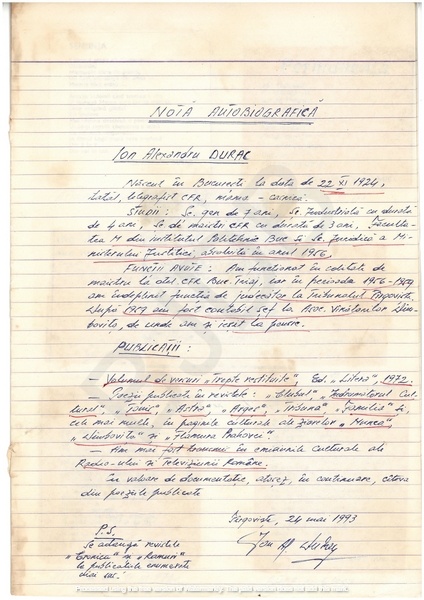 NOTĂ AUTOBIOGRAFICĂ
Ion Alexandru DURAC
Născut în București la data de 22 XI 1924,
tatăl, telegrafist CFR, mama - casnică.
STUDII: Șc. gen de 7 ani, Șc. Industrială cu durată
de 4 ani, Șc. de maiștri CFR cu durata de 3 ani, Faculta-
tea M din institutul Politehnic Buc și Șc. Juridică a Mi-
nisterului Justiției, absolvită în anul 1956.
FUNCȚII AVUTE: Am funcționat în calitate de
maistru la atel. CFR Buc Triaj, iar în perioada 1956-1959
am îndeplinit funcția de judecător la Tribunalul Tîrgoviște.
După 1959 am fost contabil șef la Asoc. Vînătorilor Dîm-
bovița, de unde am și ieșit la pensie.
PUBLICAȚII:
- Volumul de versuri „Trepte restituite", Ed. „Litera", 1972.
- Poezii publicate în revistele: „Clubul", „Îndrumătorul Cul-
tural", „Tomis", „Astra", „Argeș", „Tribuna", „Familia" și,
cele mai multe, în paginile culturale ale ziarelor „Munca"
„Dîmbovița" și „Flamura Prahovei"
- Am mai fost transmis în emisiunile culturale ale
Radio-ului și Televiziunii Române.
În valoare de documentație, atașez, în continuare, cîteva
din poeziile publicate
Tîrgoviște, 24 mai 1993
P.S.
Se adaugă revistele
„Cronica" și „Ramuri"
la publicațiile enumerate
mai sus.